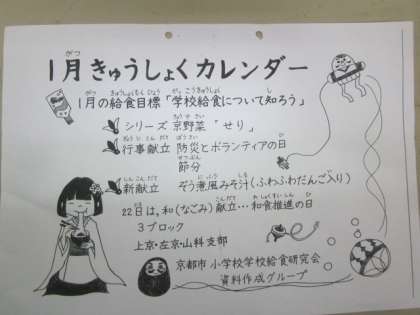 1月きゅうしょくカレンダー
1月の給食目標「学校給食について知ろう」
シリーズ 京野菜 "せり"
行事献立 防災とボランティアの日
節分
新献立 ぞう煮風みそ汁(ふわふわだんご入り)
22日は,和(なごみ)献立…和食推進の日
3ブロック
上京・左京・山科支部
京都市 小学校学校給食研究会
資料作成グループ